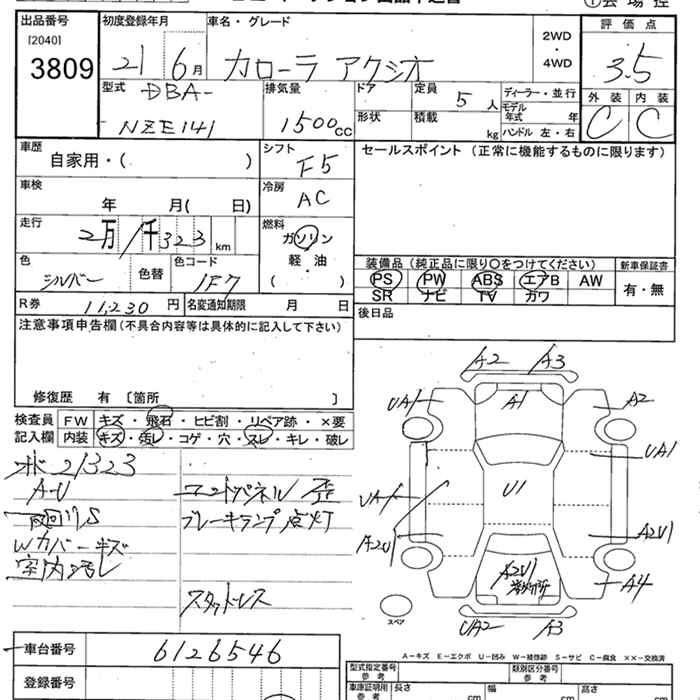 出品番号
[2040]
3809
初度登録年月
21 6月
車名・グレード
カローラ アクシオ
2WD
・
4WD
評価点
3.5
外装 内装
C C
型式
DBA-
NZE141
排気量
1500cc
ドア
形状
定員 5人
積載 kg
ディーラー・並行
モデル年式 年
ハンドル 左・右
車歴
自家用・( )
シフト
F5
セールスポイント (正常に機能するものに限ります)
車検
年 月( 日)
冷房
AC
走行
2万1千323km
燃料
ガソリン
軽・油
( )
色
シルバー
色替
色コード
1F7
装備品 (純正品に限り○をつけてください)
PS PW ABS エアB AW
SR ナビ TV カワ
新車保証書
有・無
R券 11,230円
名変通知期限 月 日
後日品
注意事項申告欄(不具合内容等は具体的に記入して下さい)
修復歴 有 〔箇所 〕
検査員
記入欄
FW キズ・飛石・ヒビ割・リペア跡・×要
内装 キズ・汚レ・コゲ・穴・スレ・キレ・破レ
21323
A-U
Wカバーキズ
室内汚レ
エンドパネル歪
ブレーキランプ点灯
スタットレス
A2 A3
UA1 A1 A2
UA1
U1
UA1
A2U1 A2U1
A2U1
A4
UA2 A3
スペア
A-キズ E-エクボ U-凹み W-補修跡 S-サビ C-腐食 ××-交換済
車台番号 6126546
登録番号
型式指定番号
参考
類別区分番号
参考
車庫証明用
参考
長さ cm
幅 cm
高さ cm